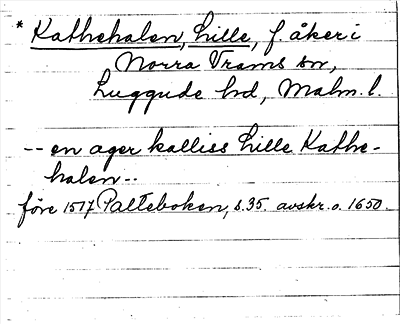 * Kathehalen, Lille, f. åker i
Norra Vrams sn,
Luggude hd, Malm. l.
-- en ager kalliss Lille Kathe-
halen --
före 1517 Palteboken, s.35. avskr. o. 1650.